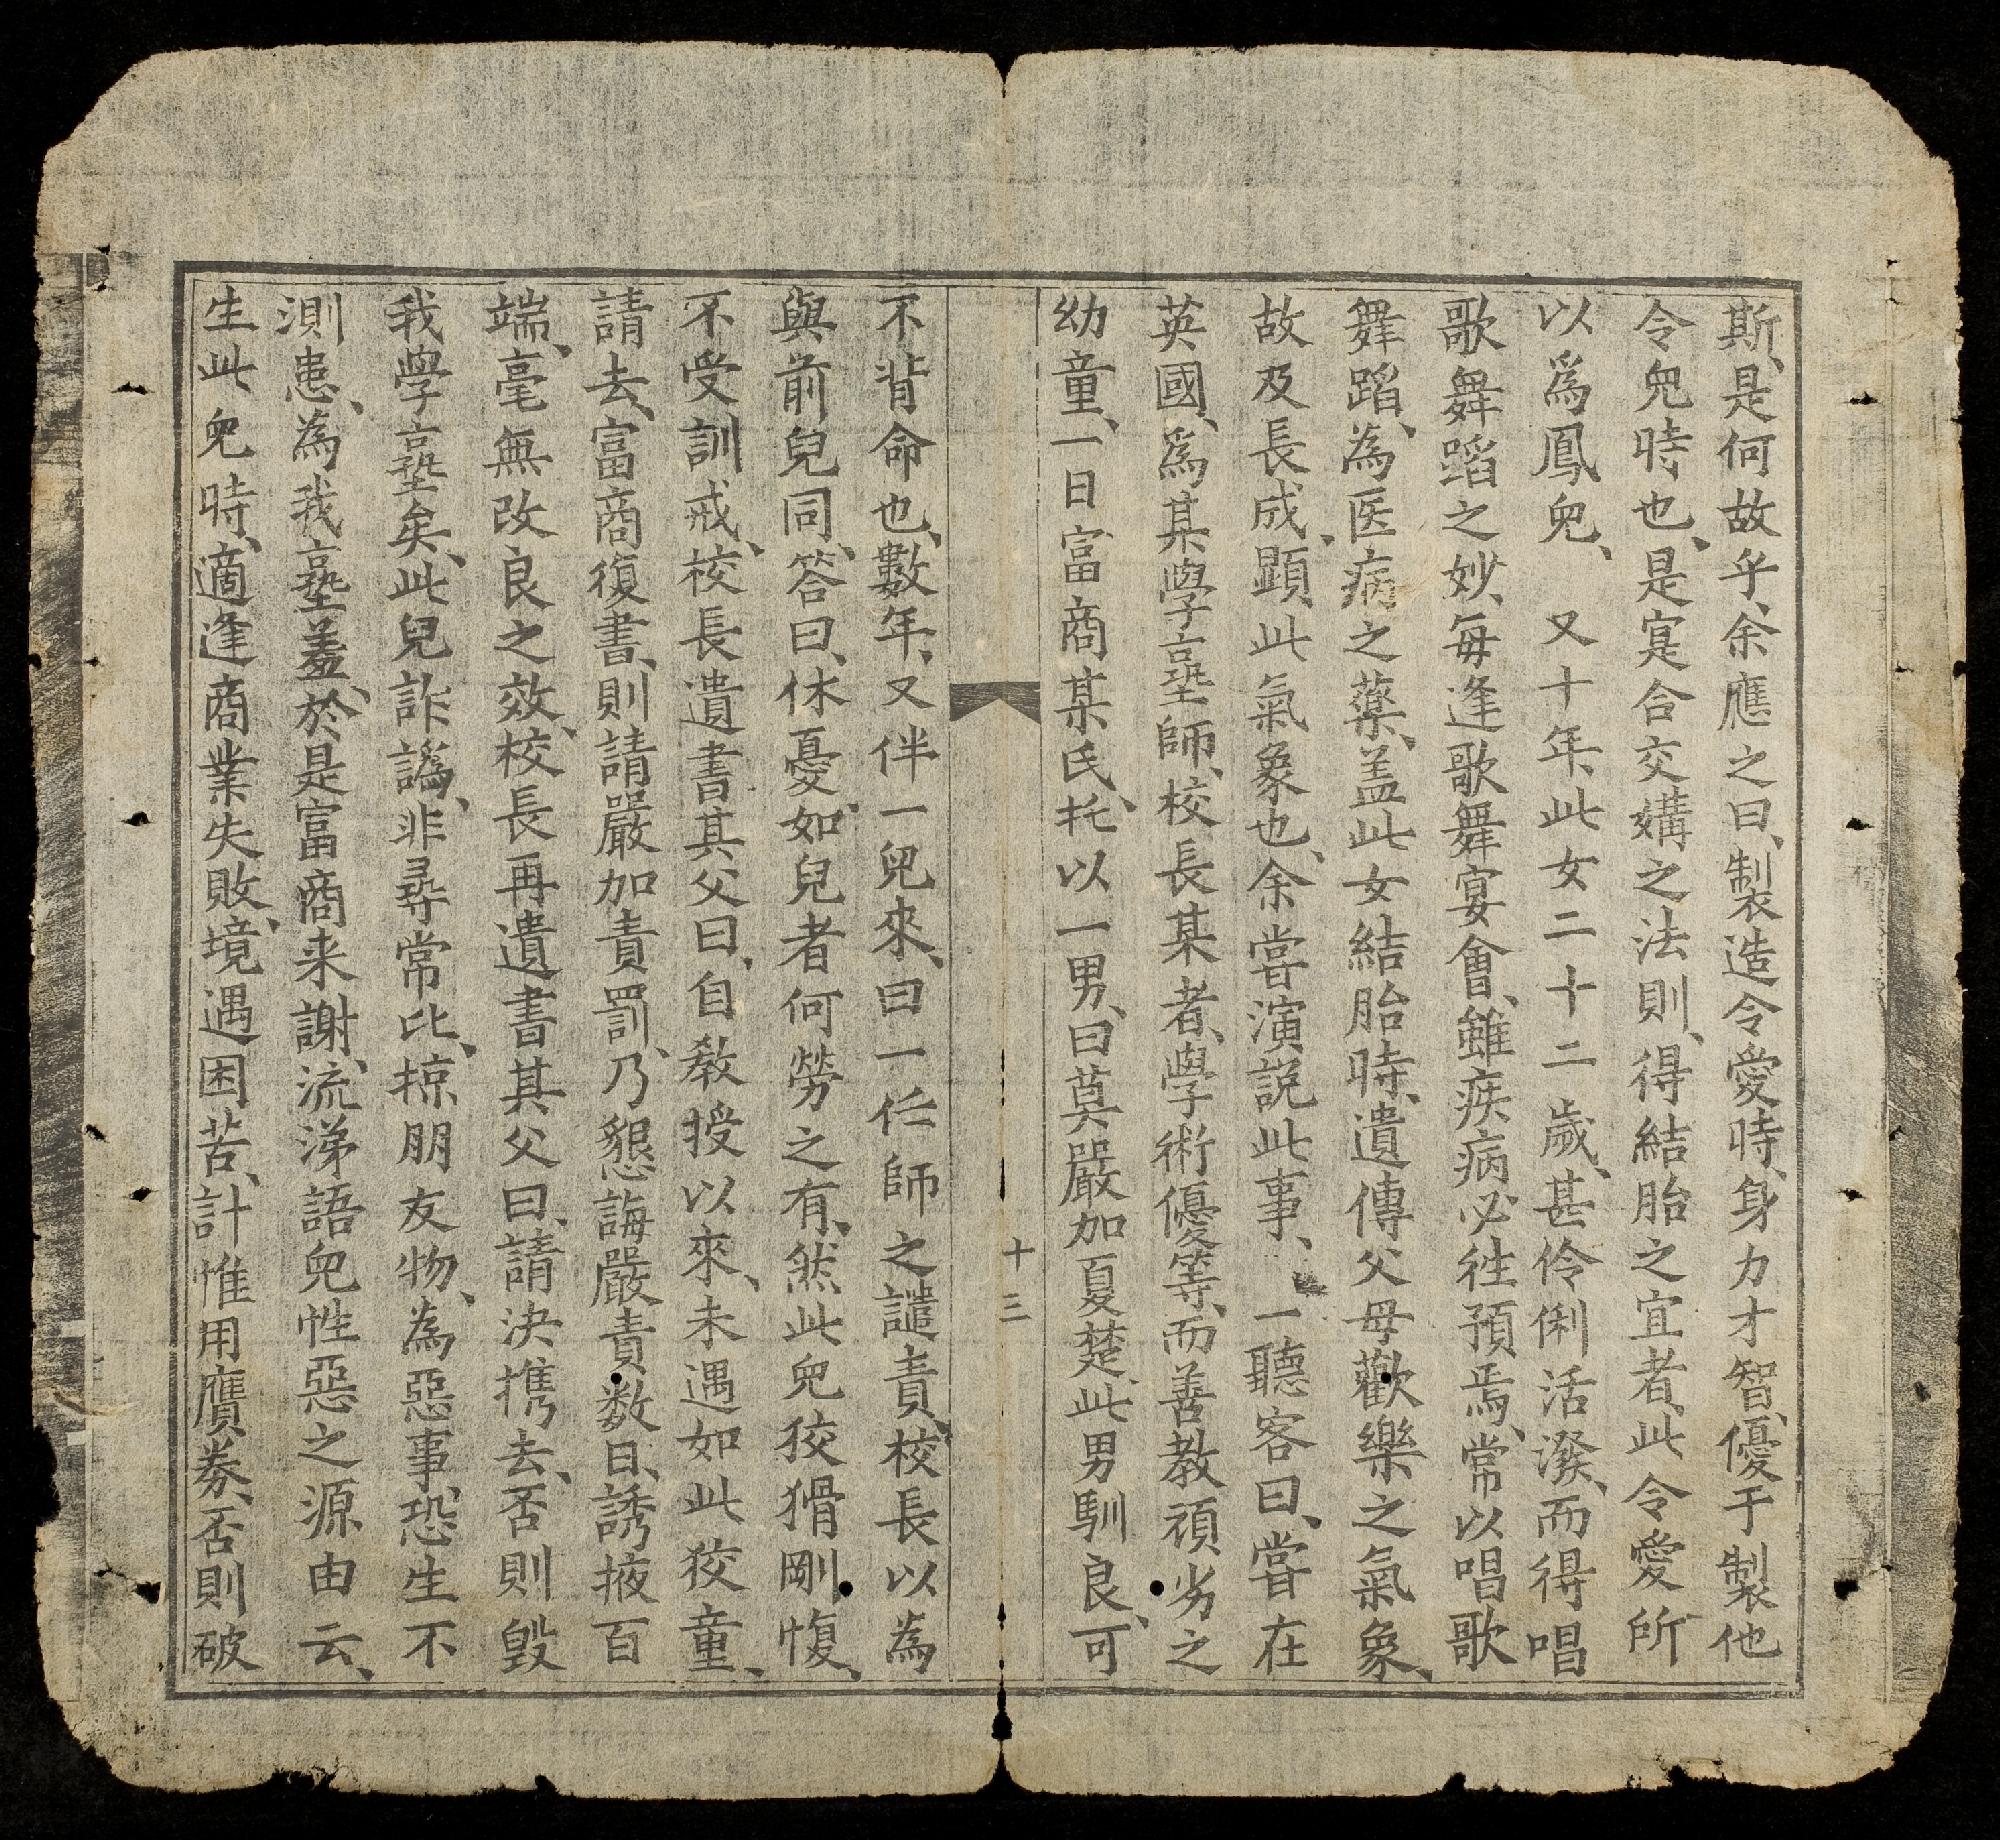 斯、是何故乎、余應之曰、製造令愛時、身力才智、優于製他
令兒時也、是寔合交媾之法則、得結胎之宜者、此令愛所
以爲鳳兒、　又十年、此女二十二歲、甚伶俐活潑、而得唱
歌舞蹈之妙、每逢歌舞宴會、雖疾病必徃預焉、常以唱歌
舞蹈、為医病之藥、盖此女結胎時、遺傳父母歡樂之氣象、
故及長成、顕此氣象也、余嘗演説此事、一聽客曰、嘗在
英國、爲某學臺師、校長某者、學術優等、而善教頑劣之
幼童、一日富商某氏、托以一男、曰莫嚴加夏楚、此男馴良、可
十三
不背命也、數年、又伴一兒來、曰一任師之譴責、校長以為
與前兒同、答曰、休憂、如兒者何勞之有、然此兒狡猾剛愎、
不受訓戒、校長遺書其父曰、自教授以來、未遇如此狡童、
請去、富商復書、則請嚴加責罰、乃懇誨嚴責数日、誘掖百
端、毫無改良之效、校長再遺書其父曰、請決携去、否則毀
我學臺矣、此兒詐譌、非尋常比、掠朋友物、為惡事、恐生不
測患、為我臺羞、於是富商来謝、流涕語兒性惡之源由云、
生此兒時、適逢商業失敗、境遇困苦、計惟用贋券、否則破